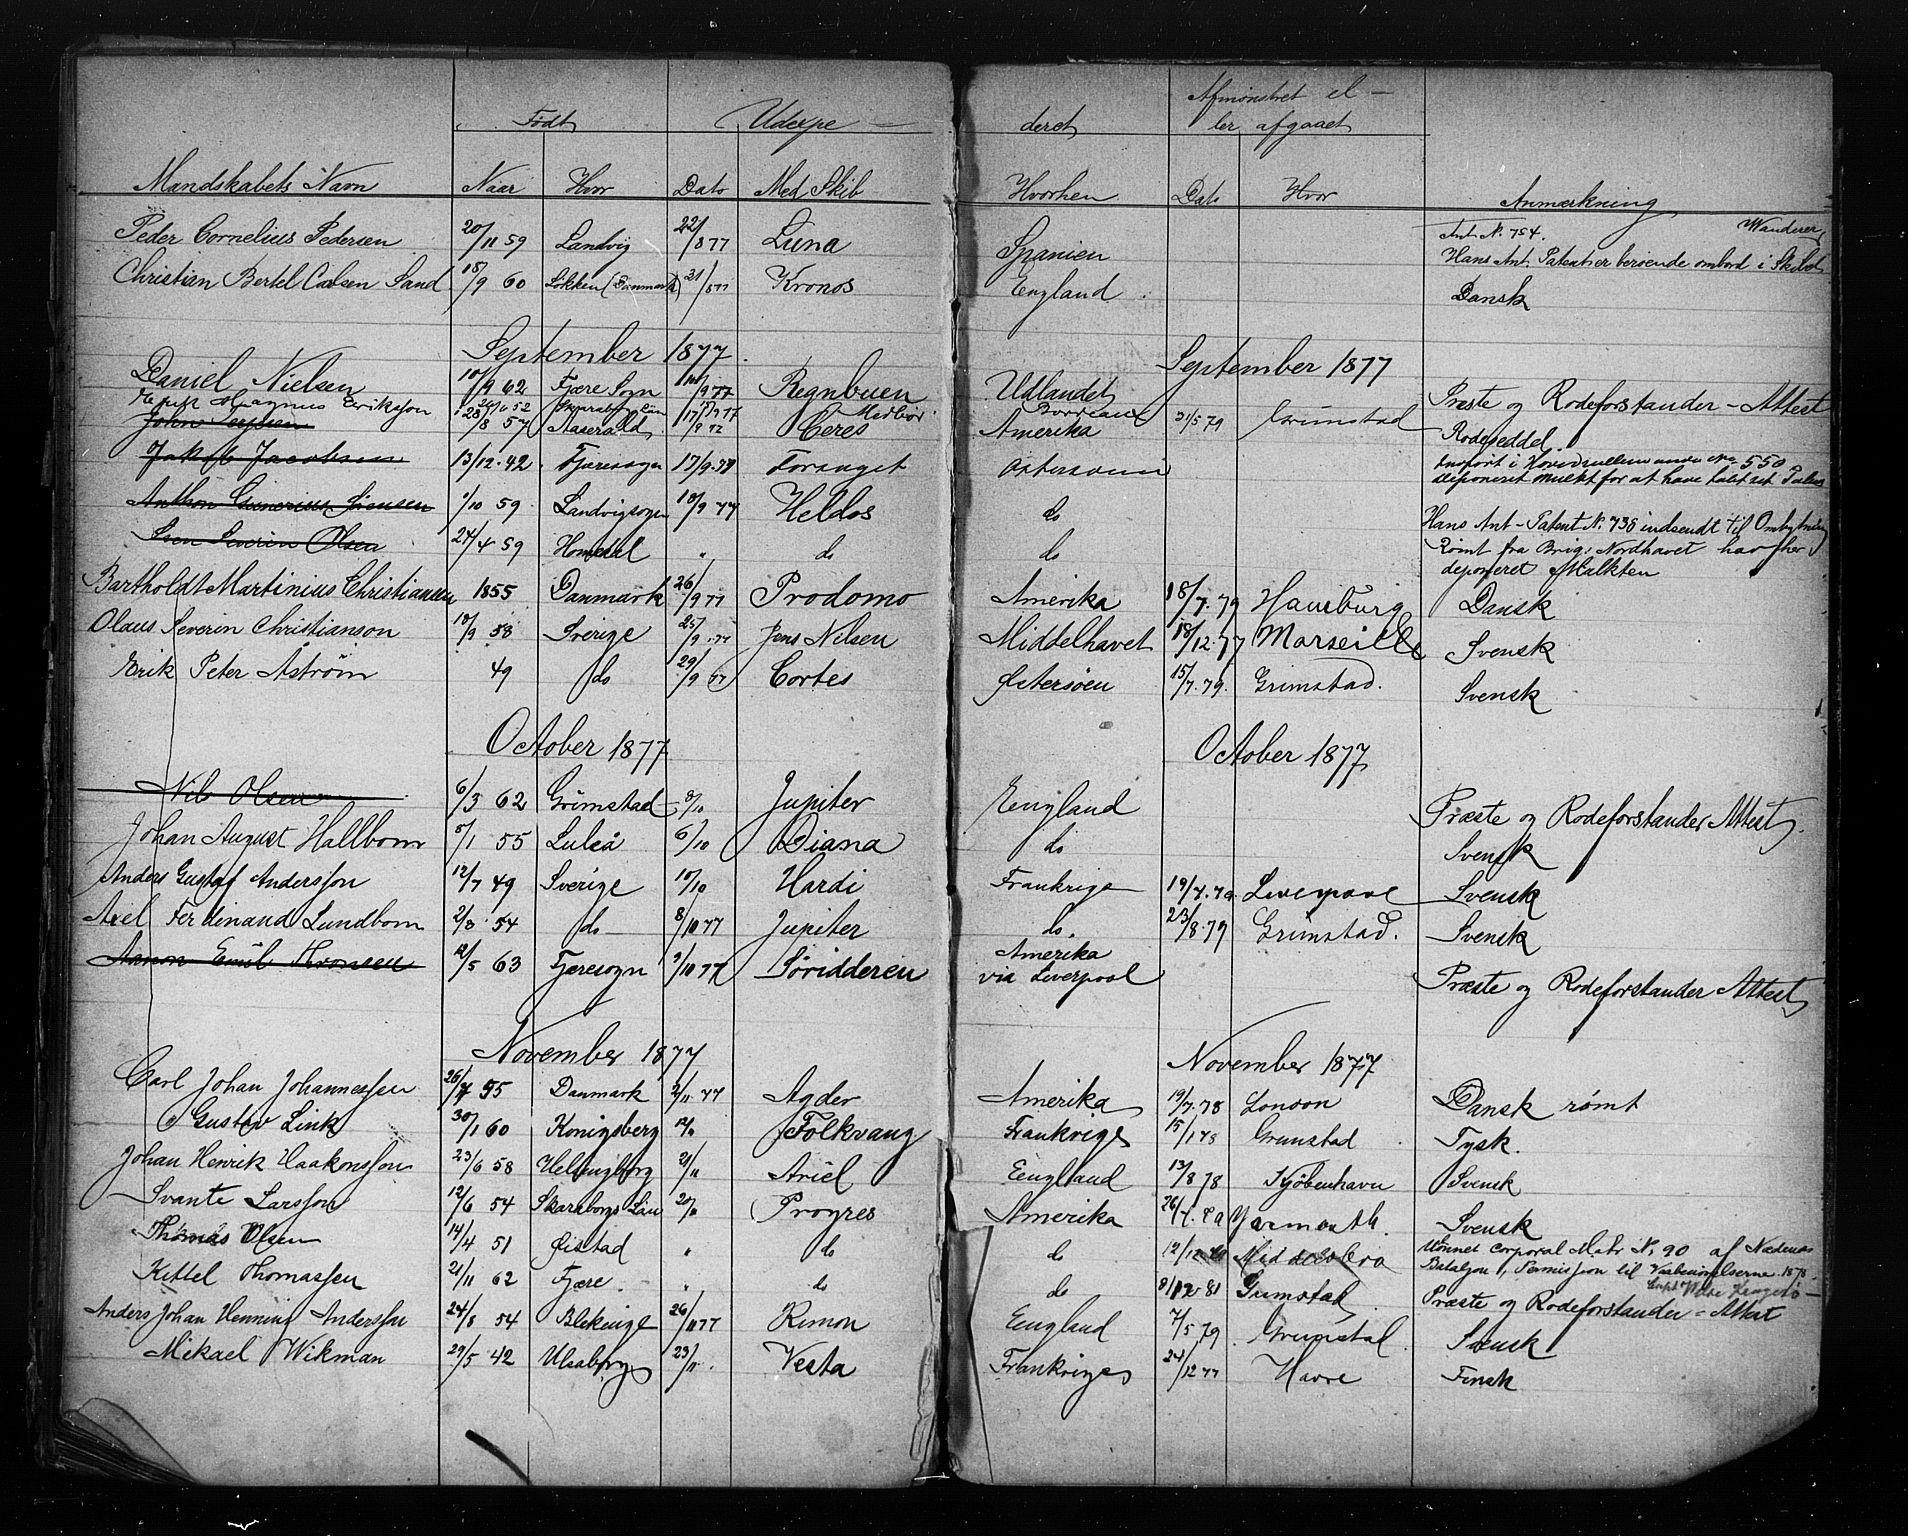 Født Udexpe — deret Afmønstret el — ler afgaaet
Mandskabets Navn Naar Hvor Dato Med Skib Hvorhen Dato Hvor Anmærkning
Peder Cornelius Pedersen 20/11 59 Landvig 22/8 77 Luna Spanien Ant N. 754. Wanderer
Hans Ant Patent er beroende ombord i Skibet
Christian Bertel Carlsen Sand 18/9 60 Løkken (Danmark) 21/8 77 Kronos England Dansk
September 1877 September 1877
Daniel Nielsen 10/9 62 Fjære Sogn /9 77 Regnbuen Udlandet Præste og Rodeforstander-Attest
Magnus Eriksson 52 Medbør Bordeaux 21/5 79 Grimstad
28/8 57 Aaserald 17/9 77 Ceres Amerika Rodeseddel
Jakob Jacobsen 13/12. 42. Fjæresogn 17/9. 77 Forsøget Østersøen 550
deponeret Mulkt for at have
Anthon Gunerius Jensen 1/10 59 Landvigsogn 18/9 77 Heldos do Hans Ant-Patent N. 738 indsendt til Ombytning
Sven Severin Olsen 24/4 59 Homedal " do do Rømt fra Brig Nordhavet har her
deponeret Mulkten
Bartholdt Martinius Christiansen 1855 Danmark 26/9 77 Prodomo Amerika 18/7. 79 Hamburg Dansk
Olaus Severin Christianson 10/9 58 Sverige 25/9. 77 Jens Nilsen Middelhavet 18/12. 77 Marseille Svensk
Erik Peter Astrøm 49 do 29/9 77 Cortes Østersøen 15/7. 79. Grimstad. Svensk
October 1877 October 1877
Nils Olsen 6/3 62 Grimstad 8/10 Jupiter Eengland Præste og Rodeforstander Attest.
Johan August Hallbom 5/1 55 Luleå 6/10 Diana do Svensk
Anders Gustaf Andersson 12/7 49 Sverige 10/10 Hardi Frankrige 19/7. 79 Liverpool Svensk
Axel Ferdinand Lundbom 2/8. 54 do 8/10 77 Jupiter do. 23/8. 79 Grimstad. Svensk
Emil 12/5 63 Fjæresogn 1/10 77 Søridderen Amerika via Liverpool Præste og Rodeforstander Attest
November 1877 November 1877
Carl Johan Johannessen 26/7 55 Danmark 2/11 77 Agder Amerika 19/7. 78 London Dansk rømt
Gustav Link 30/1 60 Konigsberg 12/11 Folkvang Frankrige 15/1 78 Grimstad Tysk.
Johan Henrik Haakonsson 23/6 58 Helsingborg 21/11 Ariel Eengland 13/8 78 Kjøbenhavn Svensk
Svante Larsson 12/6 54 Skaraborgs Län 20/11 Progres Amerika 26/7. 80 Yarmouth. Svensk
Thomas Olsen 14/4 51 Øistad " do do 12/12 80 Middelsbro Corporal Matr N. 90 af Nædenæs
Bataljon, Permission til Vaabenøvelserne 1878.
Kittel Thomassen 21/11 62 Fjære. " do do 8/12 81 Grimstad Præste og Rodeforstander-Attest
Anders Johan Henning Andersson 24/8 54 Blekinge 26/11 77 Rimon Eengland 7/5 79 Grimstad. Svensk
Mikael Wikman 29/5 42 Uleaborg 23/11. Vesta Frankriges 24/12 77 Havre Finsk